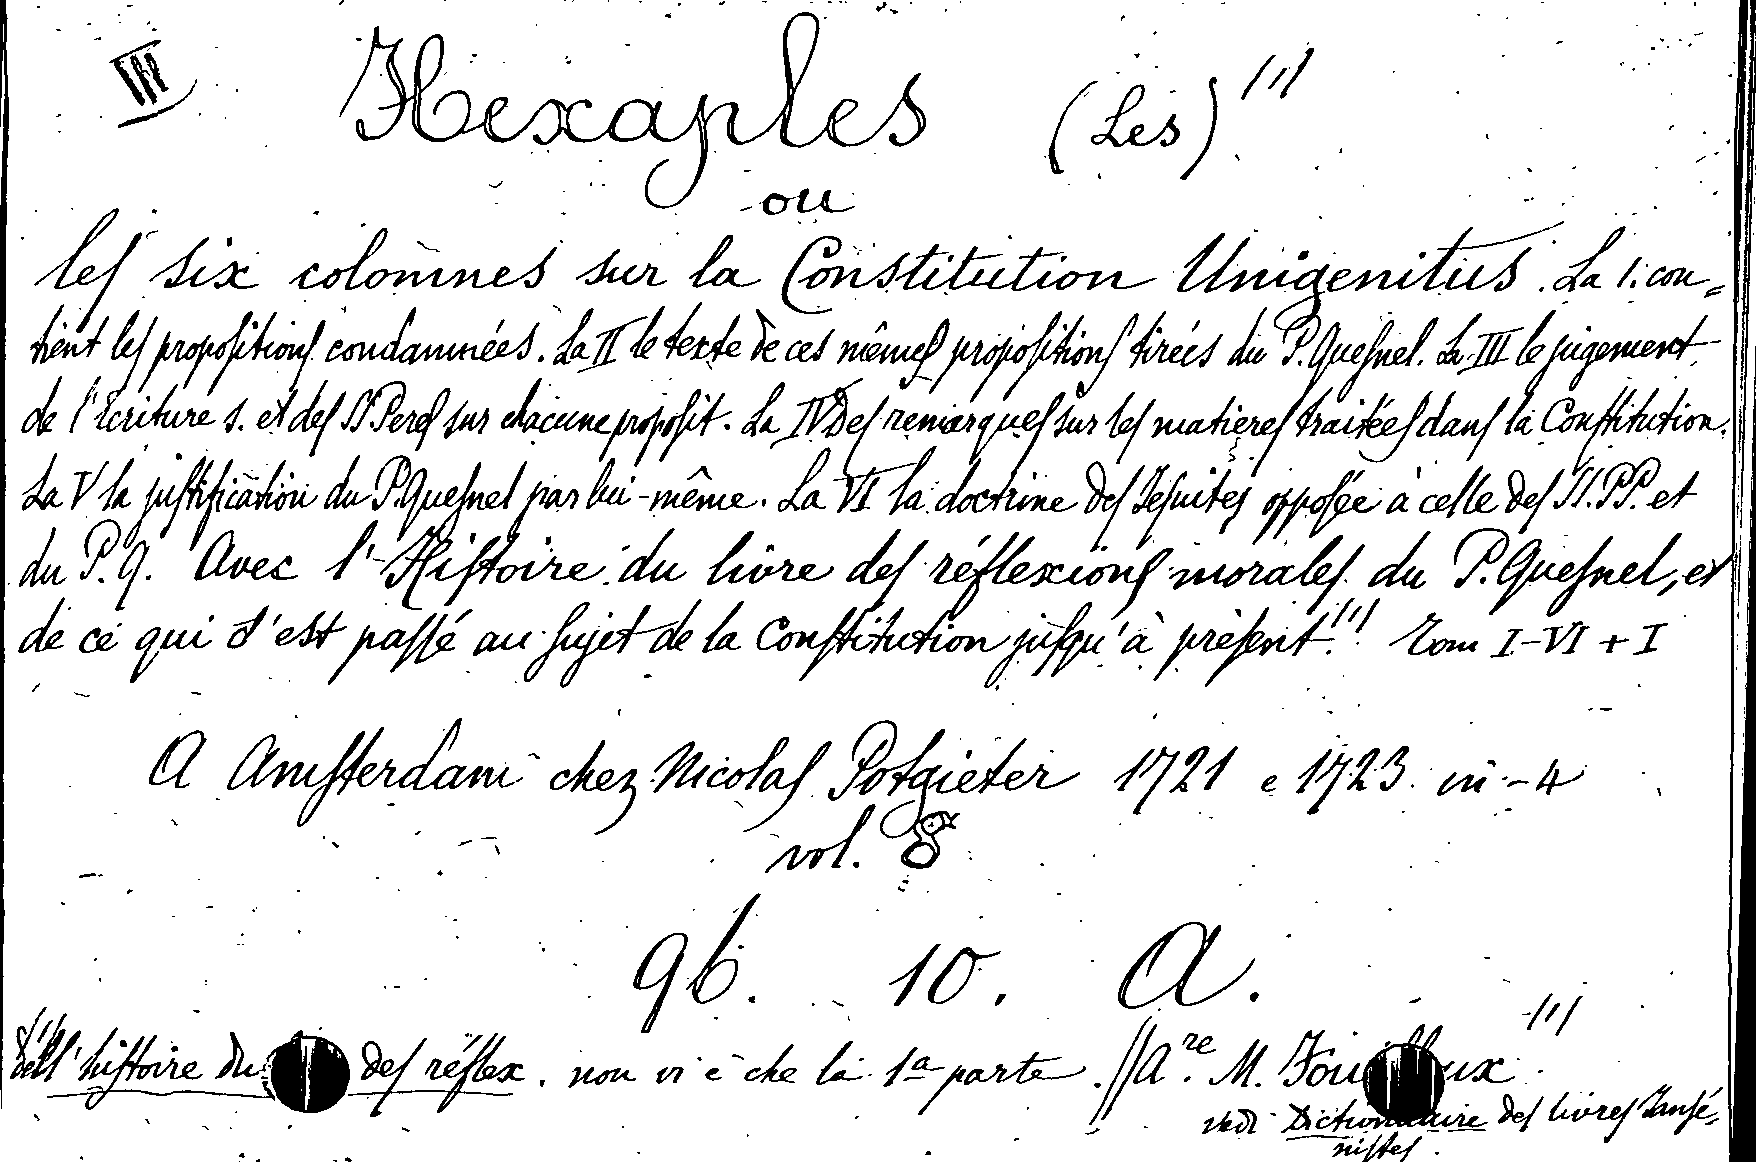 III Hexaples (Les)
ou
les six colomnes sur la Constitution Unigenitus. La 1. con=
tient les propositions condamnées. La II le texte de ces mêmes propositions tirées du P. Quesnel. La III le jugement
de l'Ecriture s. et des SS Peres sur chacune proposit. La IV Des remarques sur les matieres traitées dans la Constitution.
La V la justification du P. Quesnel par lui-même. La VI la doctrine des Jesuites opposée à celle des SS. PP. et
du P. Q. Avec l'Histoire du livre des réflexions morales du P. Quesnel, et
de ce qui s'est passé au sujet de la Constitution jusqu'à présent. Tom I-VI + I
A Amsterdam chez Nicolas Potgieter 1721 e 1723 in-4
vol. 8
96. 10. A.
Dell'histoire du des réflex. non vi è che la 1a parte. // Are. M.
vedi Dictionnaire des livres Jansé-
nistes.